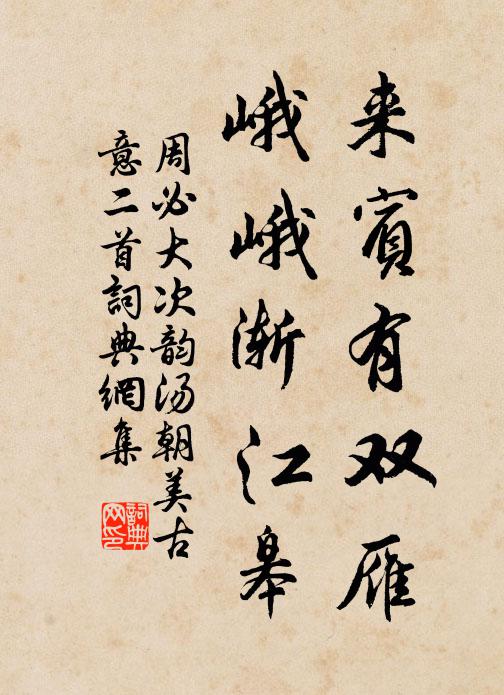 来賓有双雁
峨峨渐江皋
周必大次韵汤朝美古
意二首詞典網集
詞典
网印